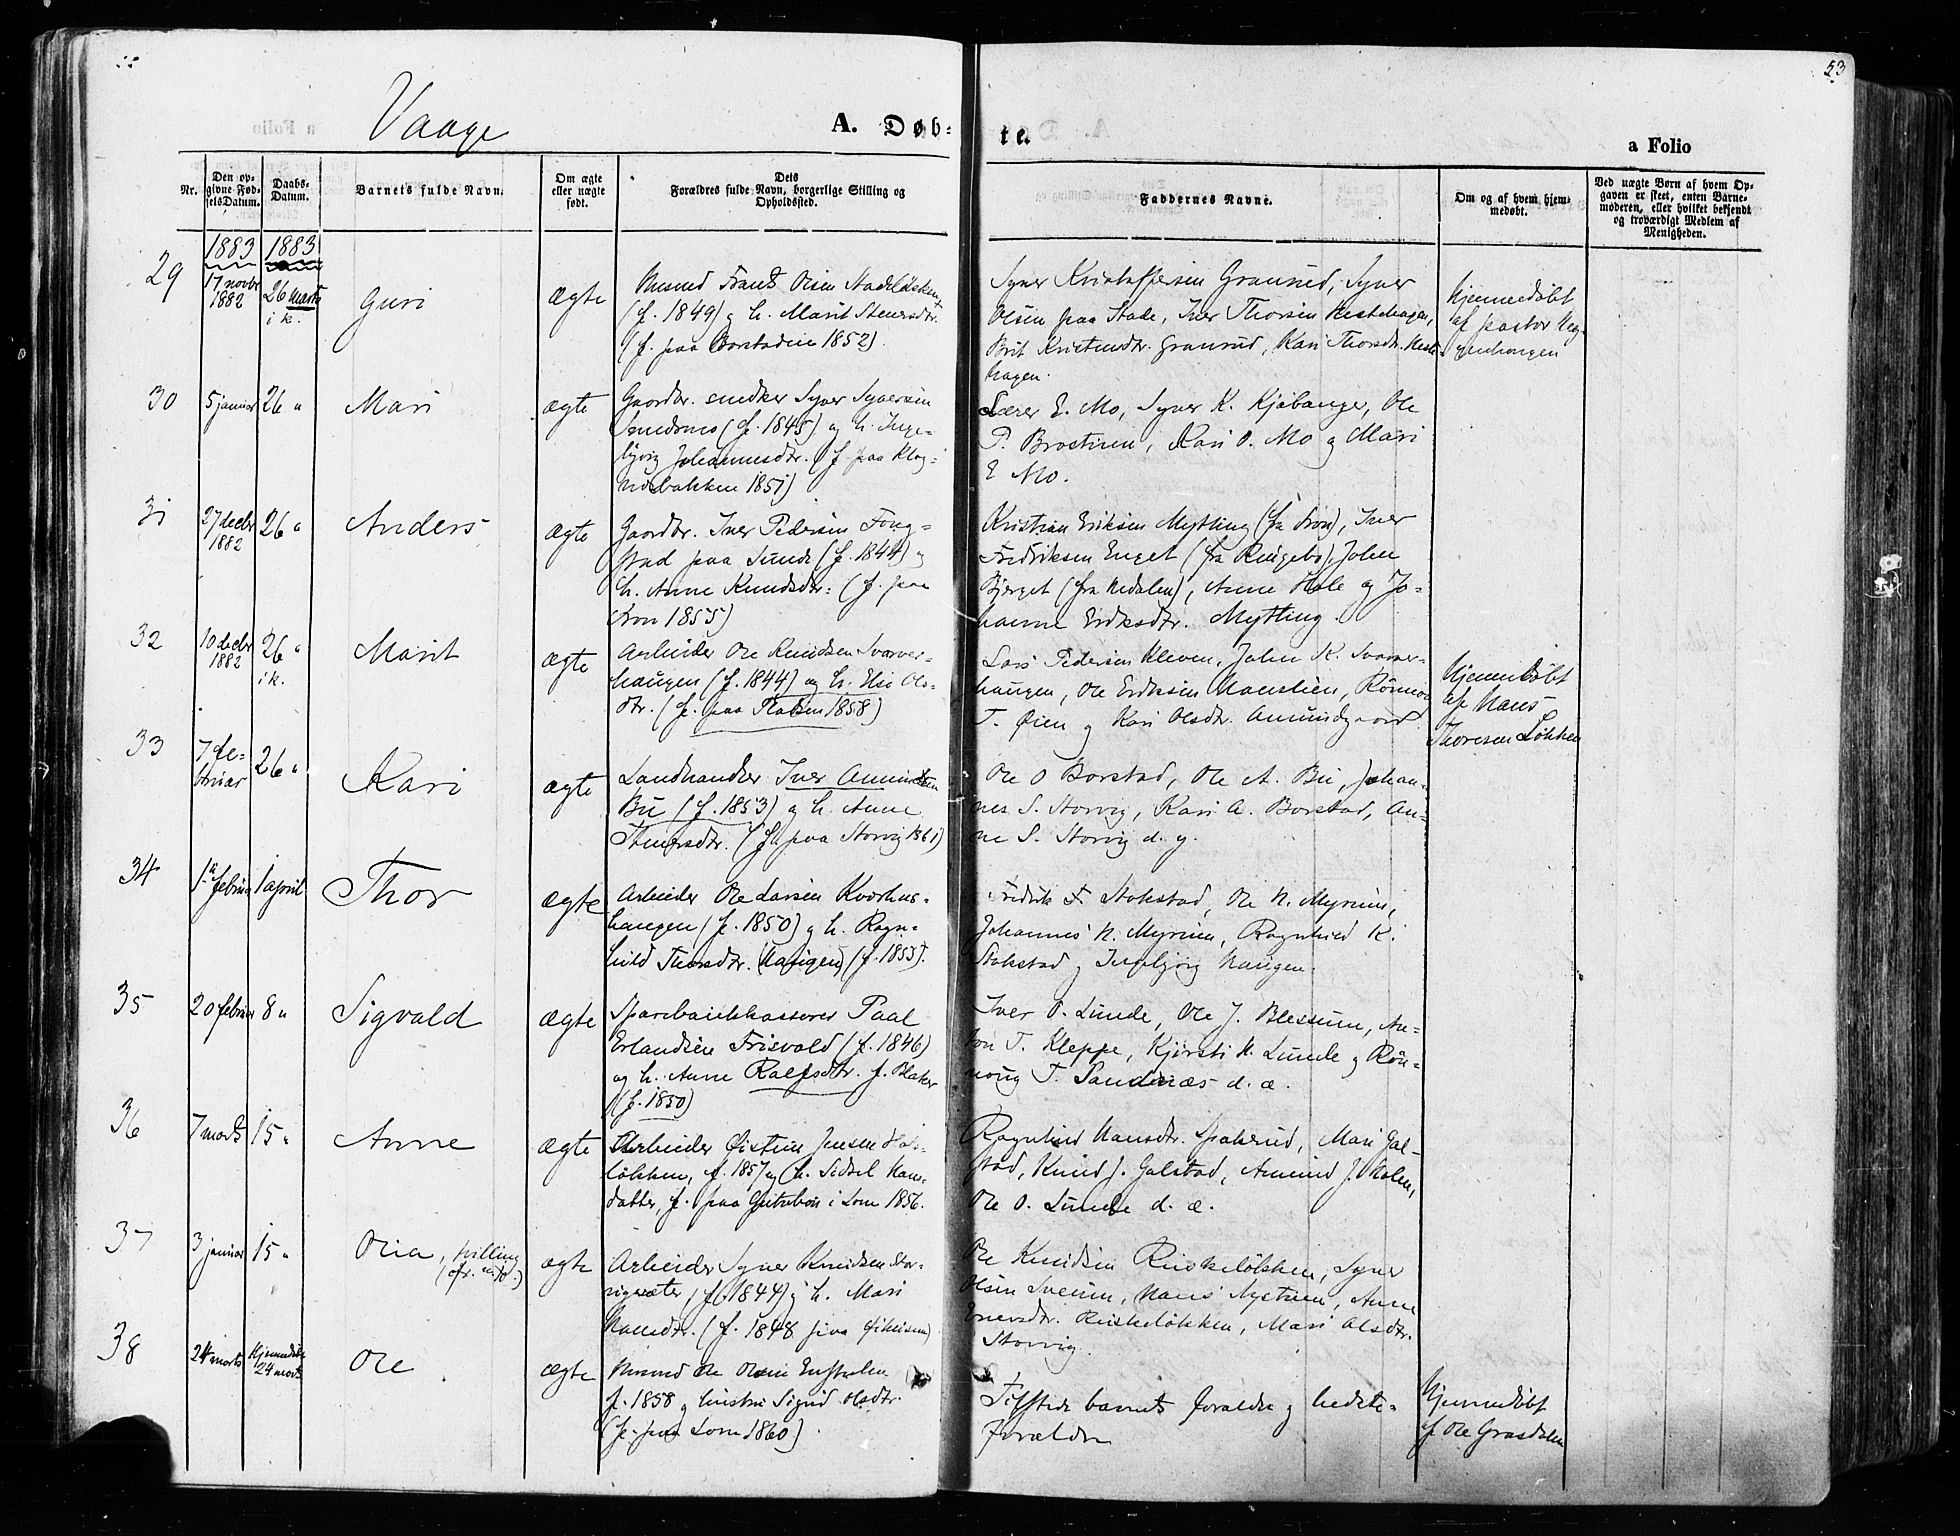 53
Vaage
A. Døb-
te.
a Folio
Nr.
Den op-
givne Fød-
selsDatum.
Daabs-
Datum.
Barnets fulde Navn.
Om ægte
eller uægte
født.
Dets
Forældres fulde Navn, borgerlige Stilling og
Opholdssted.
Faddernes Navne.
Om og af hvem hjem-
medøbt.
Ved uægte Børn af hvem Op-
gaven er skeet, enten Barne-
moderen, eller hvilket bekjendt
og troværdigt Medlem af
Menigheden.
1883
1883
29
17 novbr
1882
26 marts
i k.
Guri
ægte
Husmd Frants Olsen Stadeløkken
(f. 1849) og h. Marit Stenersdtr.
(f. paa Borstadeie 1852).
Syver Kristoffersen Gransrud, Syver
Olsen paa Stade, Iver Thorsen Hestehagen,
Brit Kristensdtr. Gransrud, Kari Thorsdtr. Heste-
hagen.
Hjemmedøbt
af pastor Heg-
genhougen
30
5 januar
26 "
Mari
ægte
Gaardbr. smedker Syver Syversen
(f. 1845) og h. Inge-
bjørg Johannesdtr. (f. paa Klog-
bakken 1851)
Lærer E. Mo, Syver K. Kjøbanger, Ole
P. Brostuen, Kari O. Mo og Mari
E Mo.
31
27 decbr
1882
26 "
Anders
ægte
Gaardbr. Iver Pedersen Foug-
stad paa Sunde (f. 1844) og
h. Anne Knudsdtr. (f. paa
Fron 1855)
Kristian Eriksen Mytting (fra Fron), Iver
Fredriksen Enget (fra Ringebo), John
Bjerget (fra Hedalen), Anne Hole og Jo-
hanne Eriksdtr. Mytting.
32
10 decbr
1882
26 "
i k.
Marit
ægte
Arbeider Ole Knudsen Svarver-
haugen (f. 1844) og h. Elsi Ols-
dtr. (f. paa Pladsen 1858)
Lars Pedersen Kleven, John K. Svarver-
haugen, Ole Eriksen Hanslien, Rønnov
T. Øien og Kari Olsdtr. Amundgaard
Hjemmedøbt
af Hans
Thoresen Løkken
33
7 fe-
bruar
26 "
Kari
ægte
Landhandler Iver Amundsen
Bu (f. 1853) og h. Anne
Stenersdtr. (f. paa Storvig 1861)
Ole O Borstad, Ole A. Bu, Johan-
nes S. Storvig, Kari A. Borstad, An-
ne S. Storvig d. y.
34
1ste februar
1 april
Thor
ægte
Arbeider Ole Larsen Kvarhus-
haugen (f. 1850) og h. Ragn-
hild Thorsdtr. (Haugen) (f. 1855).
Fredrik F Stokstad, Ole N. Myrum,
Johannes N. Myrum, Ragnhild K.
Stokstad og Ingebjørg Haugen.
35
20 februar
8 "
Sigvald
ægte
Sparebankkasserer Paal
Erlandsen Frisvold (f. 1846)
og h. Anne Ralfsdtr. f. Blaker
(f. 1850)
Iver O. Sunde, Ole J. Blessum, An-
ton T. Kleppe, Kjersti H. Sunde og Røn-
noug T. Sandnæs d. æ.
36
7 marts
15 "
Anne
ægte
Arbeider Øistein Jensen
løkken, f. 1857 og h. Sidsel Hans-
datter, f. paa i Lom 1856.
Ragnhild Hansdtr. Spakrud, Mari Gal-
stad, Knud J. Galstad, Amund J. Holen,
Ole O. Sunde d. æ.
37
3 januar
15 "
Olia, tvilling
ægte
Arbeider Syver Knudsen Stor-
vigsæter (f. 1844) og h. Mari
Hansdtr. (f. 1848 paa )
Ole Knudsen Ruskeløkken, Syver
Olsen Sveum, Hans Nystuen, Anne
Enersdtr. Ruskeløkken, Mari Olsdtr.
Storvig.
38
24 marts
Hjemmedøbt
24 marts
Ole
ægte
Husmd Ole Olsen
f. 1858 og hustru Sigrid Olsdtr.
(f. paa Lom 1860).
Tilstede barnets forældre og bedste-
forældre
Hjemmedøbt
af Ole Grasdalen